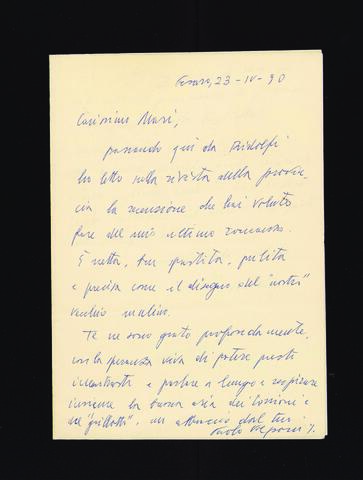 Pesaro, 23-IV-90
Carissimo Mari,
passando qui da Ridolfi
ho letto sulla rivista della provin-
cia la recensione che hai voluto
fare del mio ultimo romanzo.
È netta, pulita
e precisa come il disegno del "nostro"
vecchio mulino.
Te ne sono grato profondamente,
con la speranza viva di poterti presto
incontrarti e parlare a lungo e respirare
insieme la buona aria dei
del "grillotti", un abbraccio dal tuo
Paolo Volponi